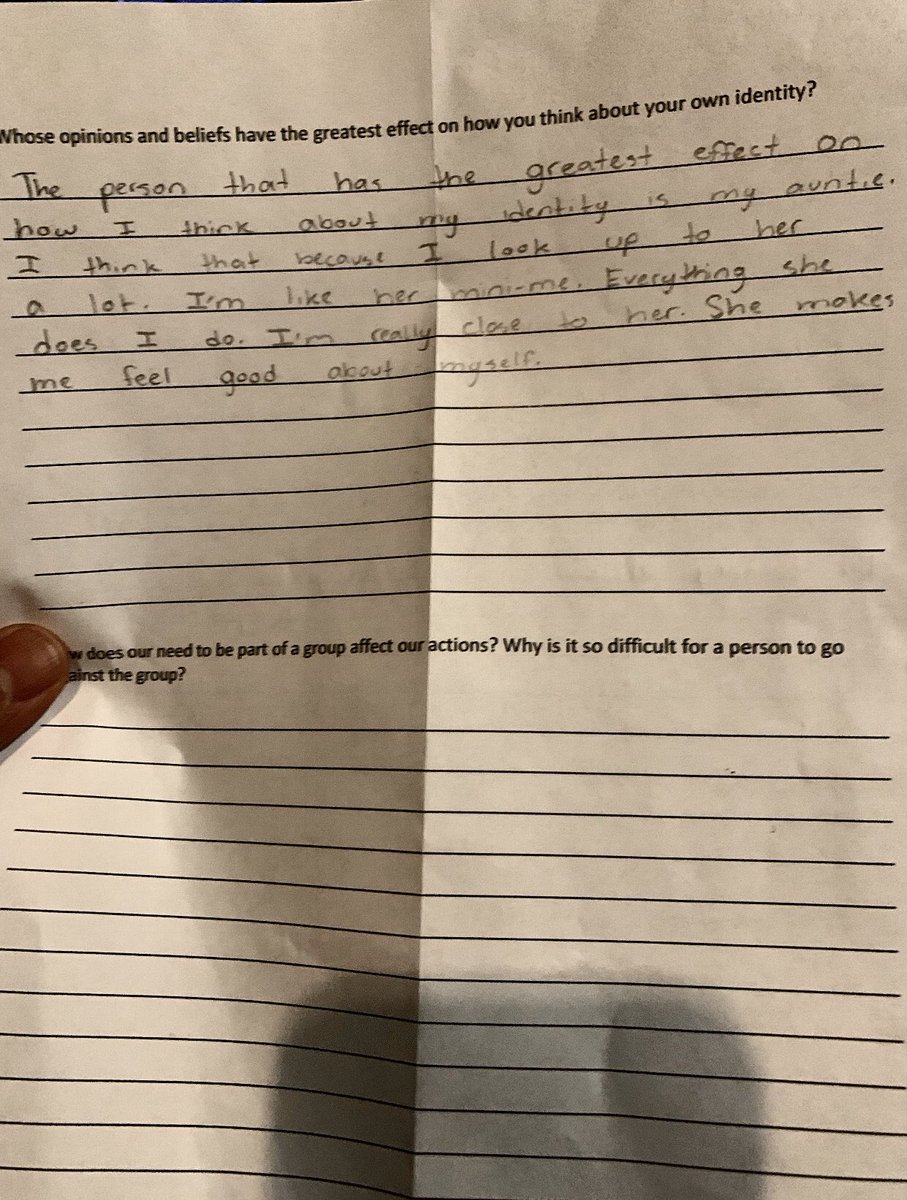 Whose opinions and beliefs have the greatest effect on how you think about your own identity?
The person that has the greatest effect on
how I think about my identity is my auntie.
I think that because I look up to her
a lot. I'm like her mini-me. Everything she
does I do. I'm really close to her. She makes
me feel good about myself.
w does our need to be part of a group affect our actions? Why is it so difficult for a person to go
ainst the group?